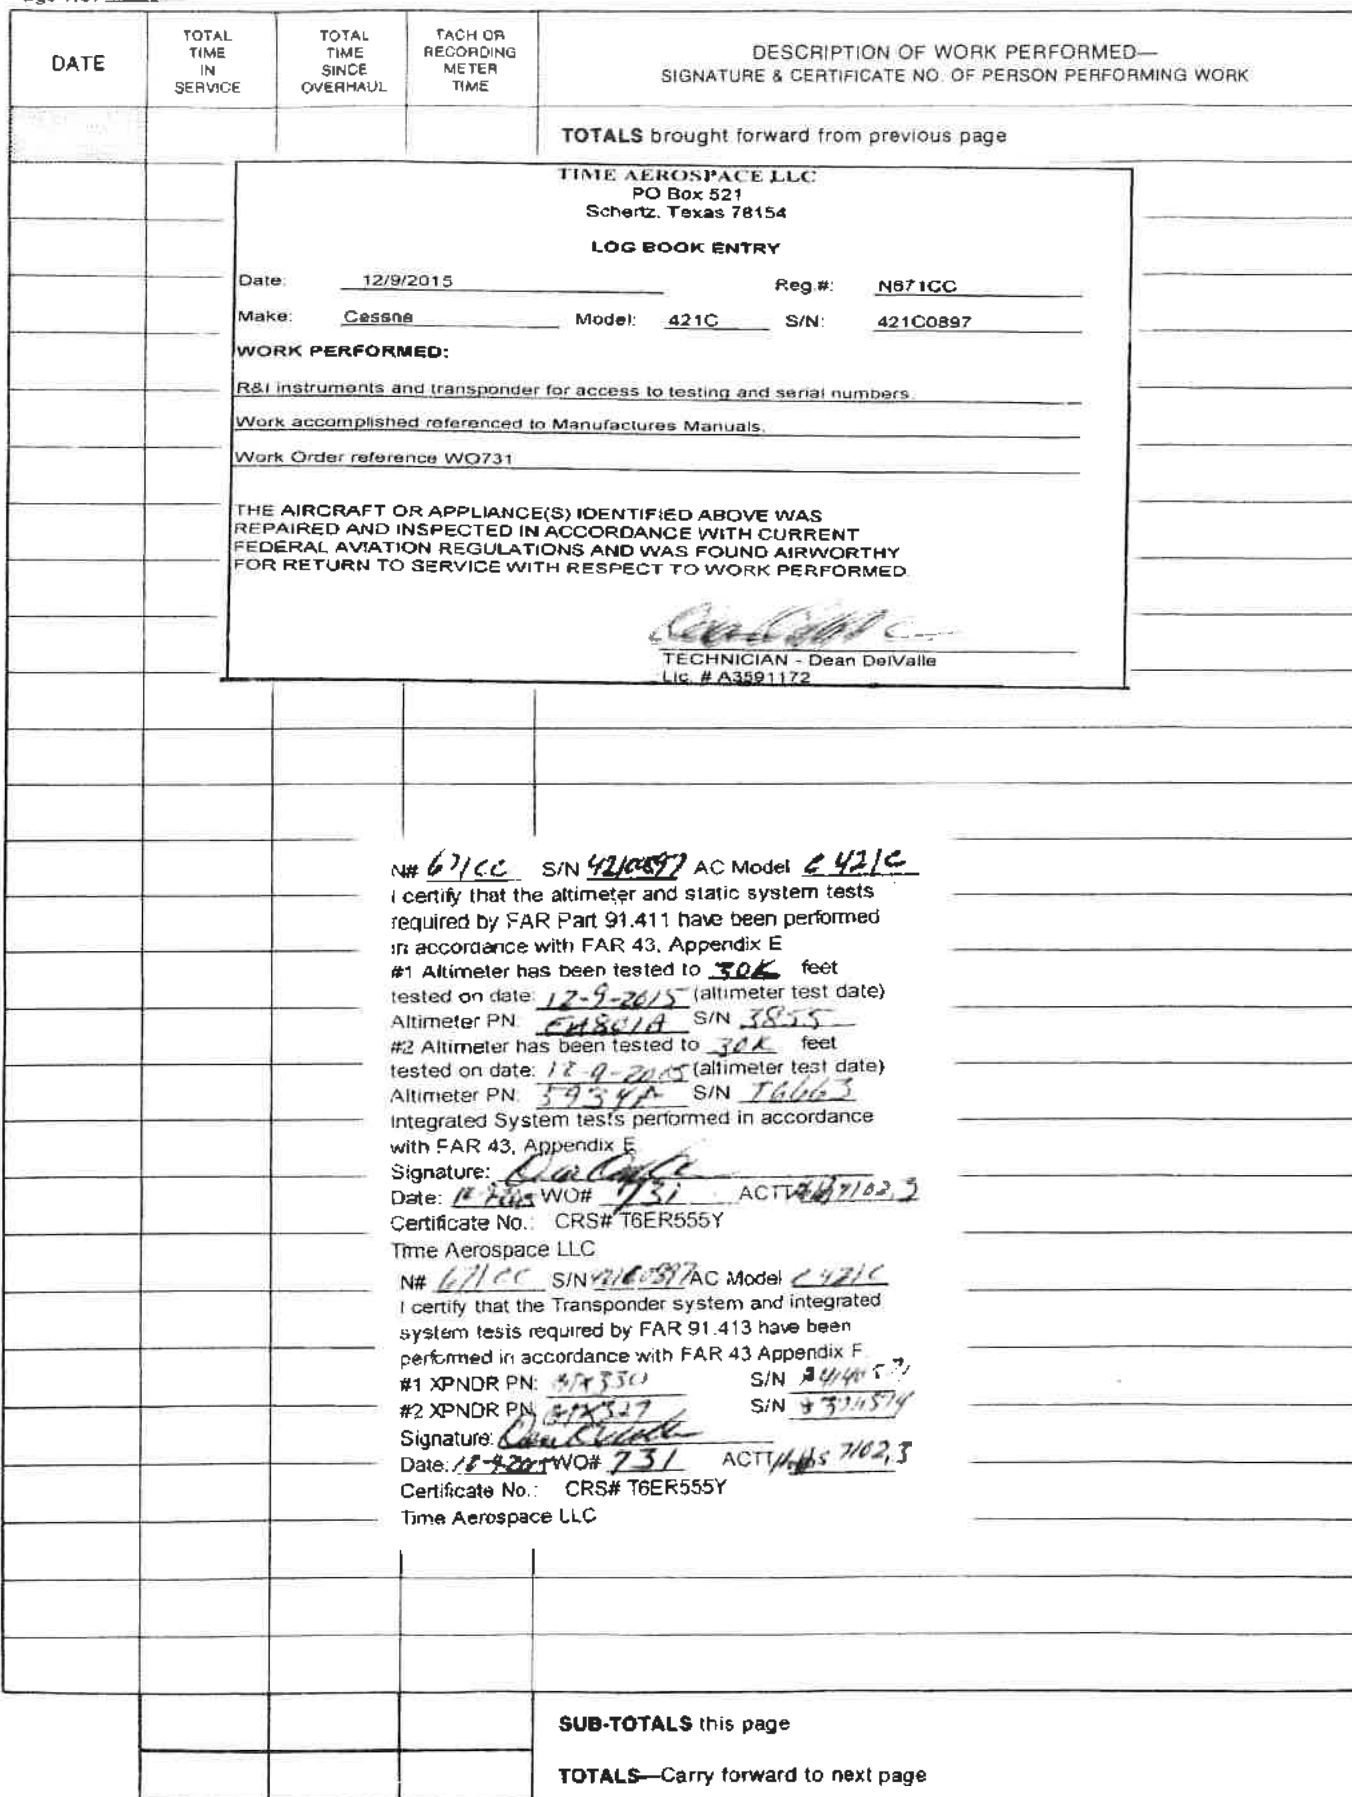 DATE
TOTAL TIME IN SERVICE
TOTAL TIME SINCE OVERHAUL
TACH OR RECORDING METER TIME
DESCRIPTION OF WORK PERFORMED—
SIGNATURE & CERTIFICATE NO. OF PERSON PERFORMING WORK
TOTALS brought forward from previous page
TIME AEROSPACE LLC
PO Box 521
Schertz, Texas 78154
LOG BOOK ENTRY
Date: 12/9/2015 Reg.#: N671CC
Make: Cessna Model: 421C S/N: 421C0897
WORK PERFORMED:
R&I instruments and transponder for access to testing and serial numbers.
Work accomplished referenced to Manufactures Manuals.
Work Order reference WO731
THE AIRCRAFT OR APPLIANCE(S) IDENTIFIED ABOVE WAS
REPAIRED AND INSPECTED IN ACCORDANCE WITH CURRENT
FEDERAL AVIATION REGULATIONS AND WAS FOUND AIRWORTHY
FOR RETURN TO SERVICE WITH RESPECT TO WORK PERFORMED.
TECHNICIAN - Dean DelValle
Lic. # A3591172
N# 671CC S/N 421C0897 AC Model C421C
I certify that the altimeter and static system tests
required by FAR Part 91.411 have been performed
in accordance with FAR 43, Appendix E
#1 Altimeter has been tested to 30K feet
tested on date: 12-9-2015 (altimeter test date)
Altimeter PN: EA801A S/N 3855
#2 Altimeter has been tested to 30K feet
tested on date: 12-9-2015 (altimeter test date)
Altimeter PN: 5934PA S/N
Integrated System tests performed in accordance
with FAR 43, Appendix E
Signature:
Date: WO# 731 ACTT 7102.3
Certificate No.: CRS# T6ER555Y
Time Aerospace LLC
N# 671CC S/N 421C0897 AC Model C421C
I certify that the Transponder system and integrated
system tests required by FAR 91.413 have been
performed in accordance with FAR 43 Appendix F.
#1 XPNDR PN: GTX330 S/N
#2 XPNDR PN: GTX327 S/N
Signature:
Date: 12-9-2015 WO# 731 ACTT Hobbs 7102.3
Certificate No.: CRS# T6ER555Y
Time Aerospace LLC
SUB-TOTALS this page
TOTALS—Carry forward to next page